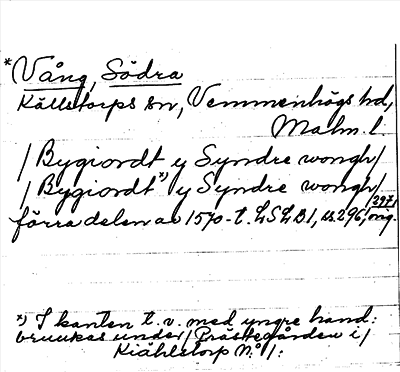 * Vång, Södra
Källstorps sn, Vemmenhögs hd,
Malm. l.
/ Bygiordt y Syndre wongh/
/ Bygiordt *) y Syndre wongh/
297,
förra delen av 1570-t. LSLB1, s. 296, orig.
*) I kanten t.v. med yngre hand:
bruukas under / Prästegården i/
Kiählstorp N:o /: